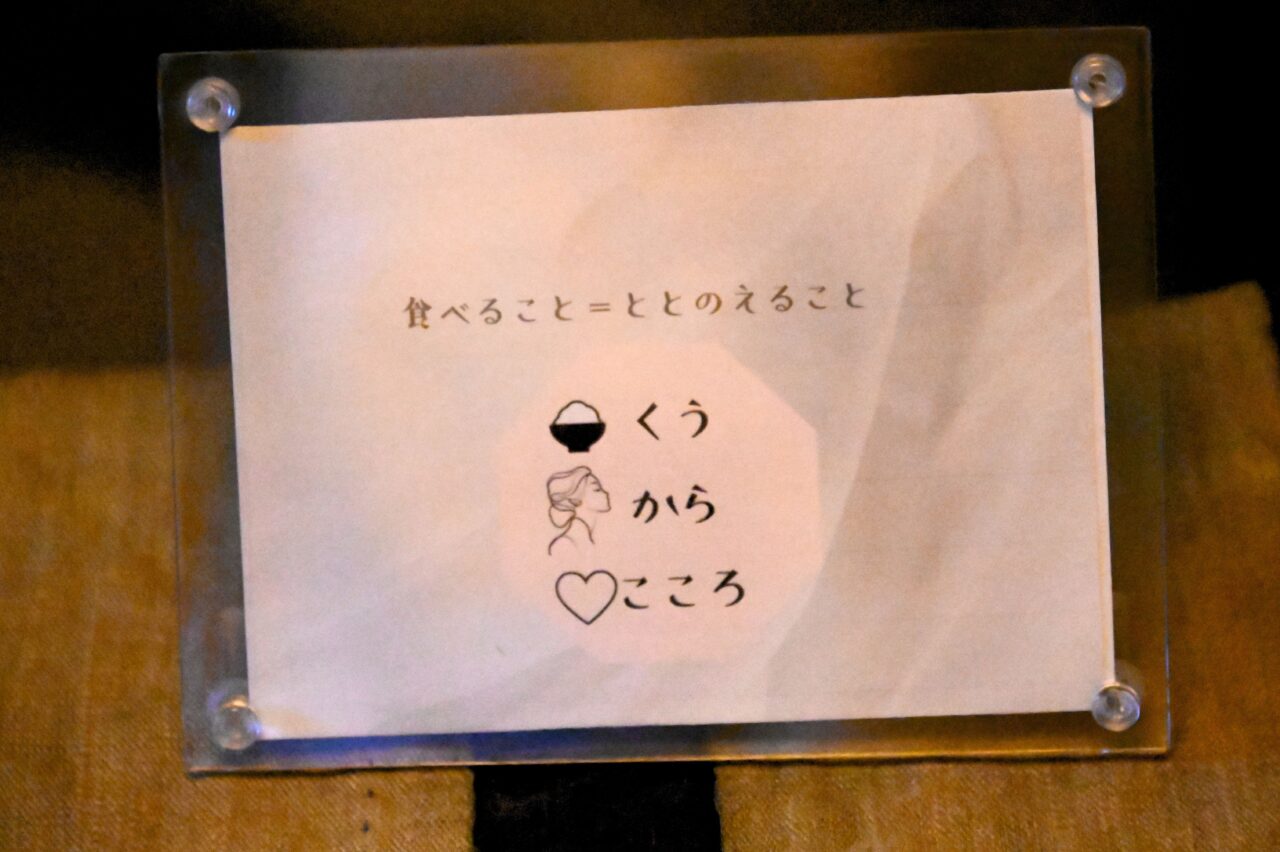 食べること＝ととのえること
くう
から
こころ